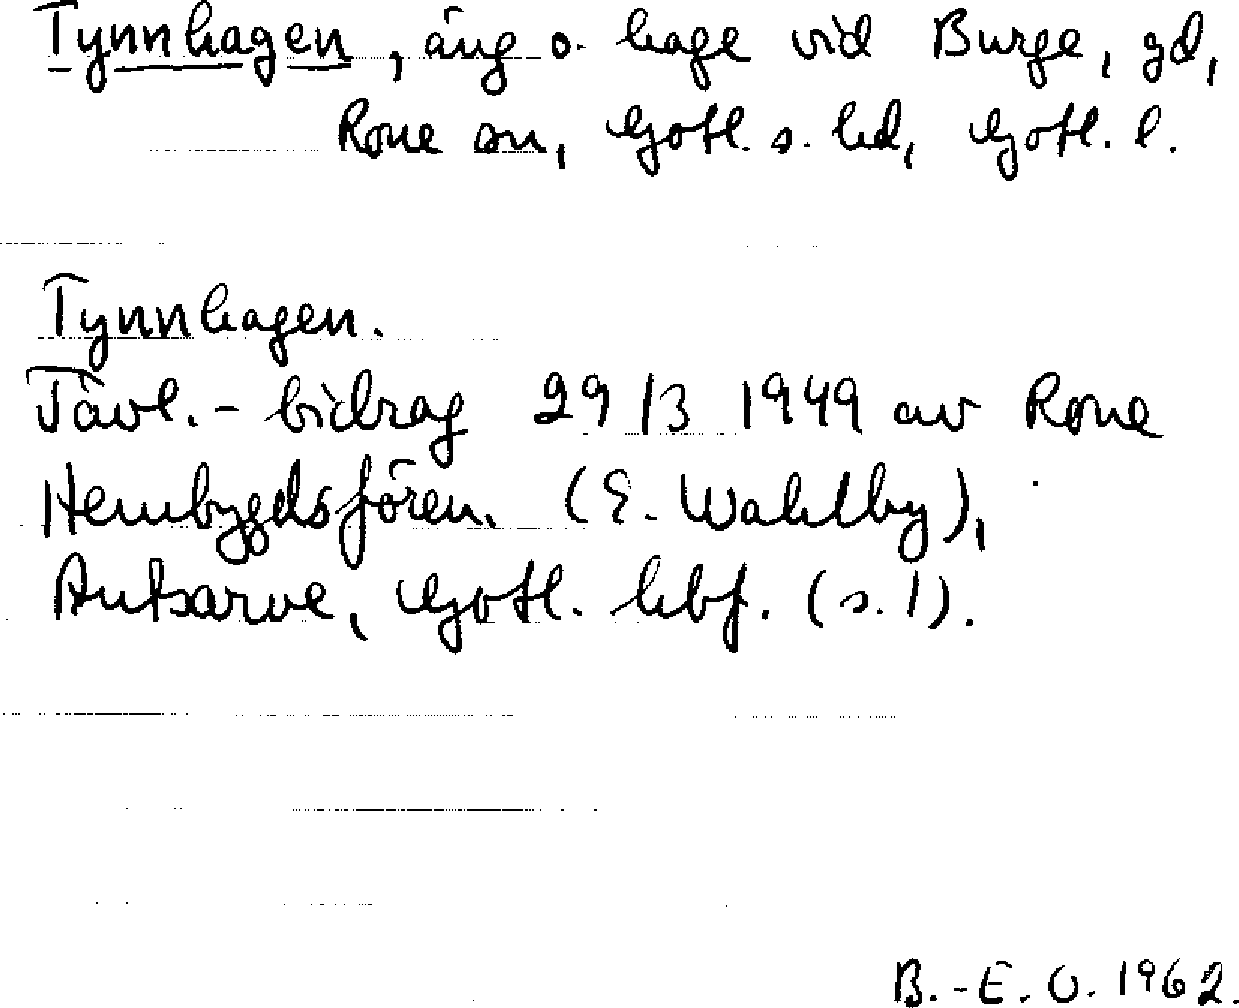 Tynnhagen, äng o. hage vid Burge, gd,
Rone sn, Gotl. s. hd, Gotl. l.
Tynnhagen.
Tävl.-bidrag 29/3 1949 av Rone
Hembygdsfören. (E. Wahlby),
Autsarve, Gotl. hbf. (s. 1).
B.-E. O. 1962.